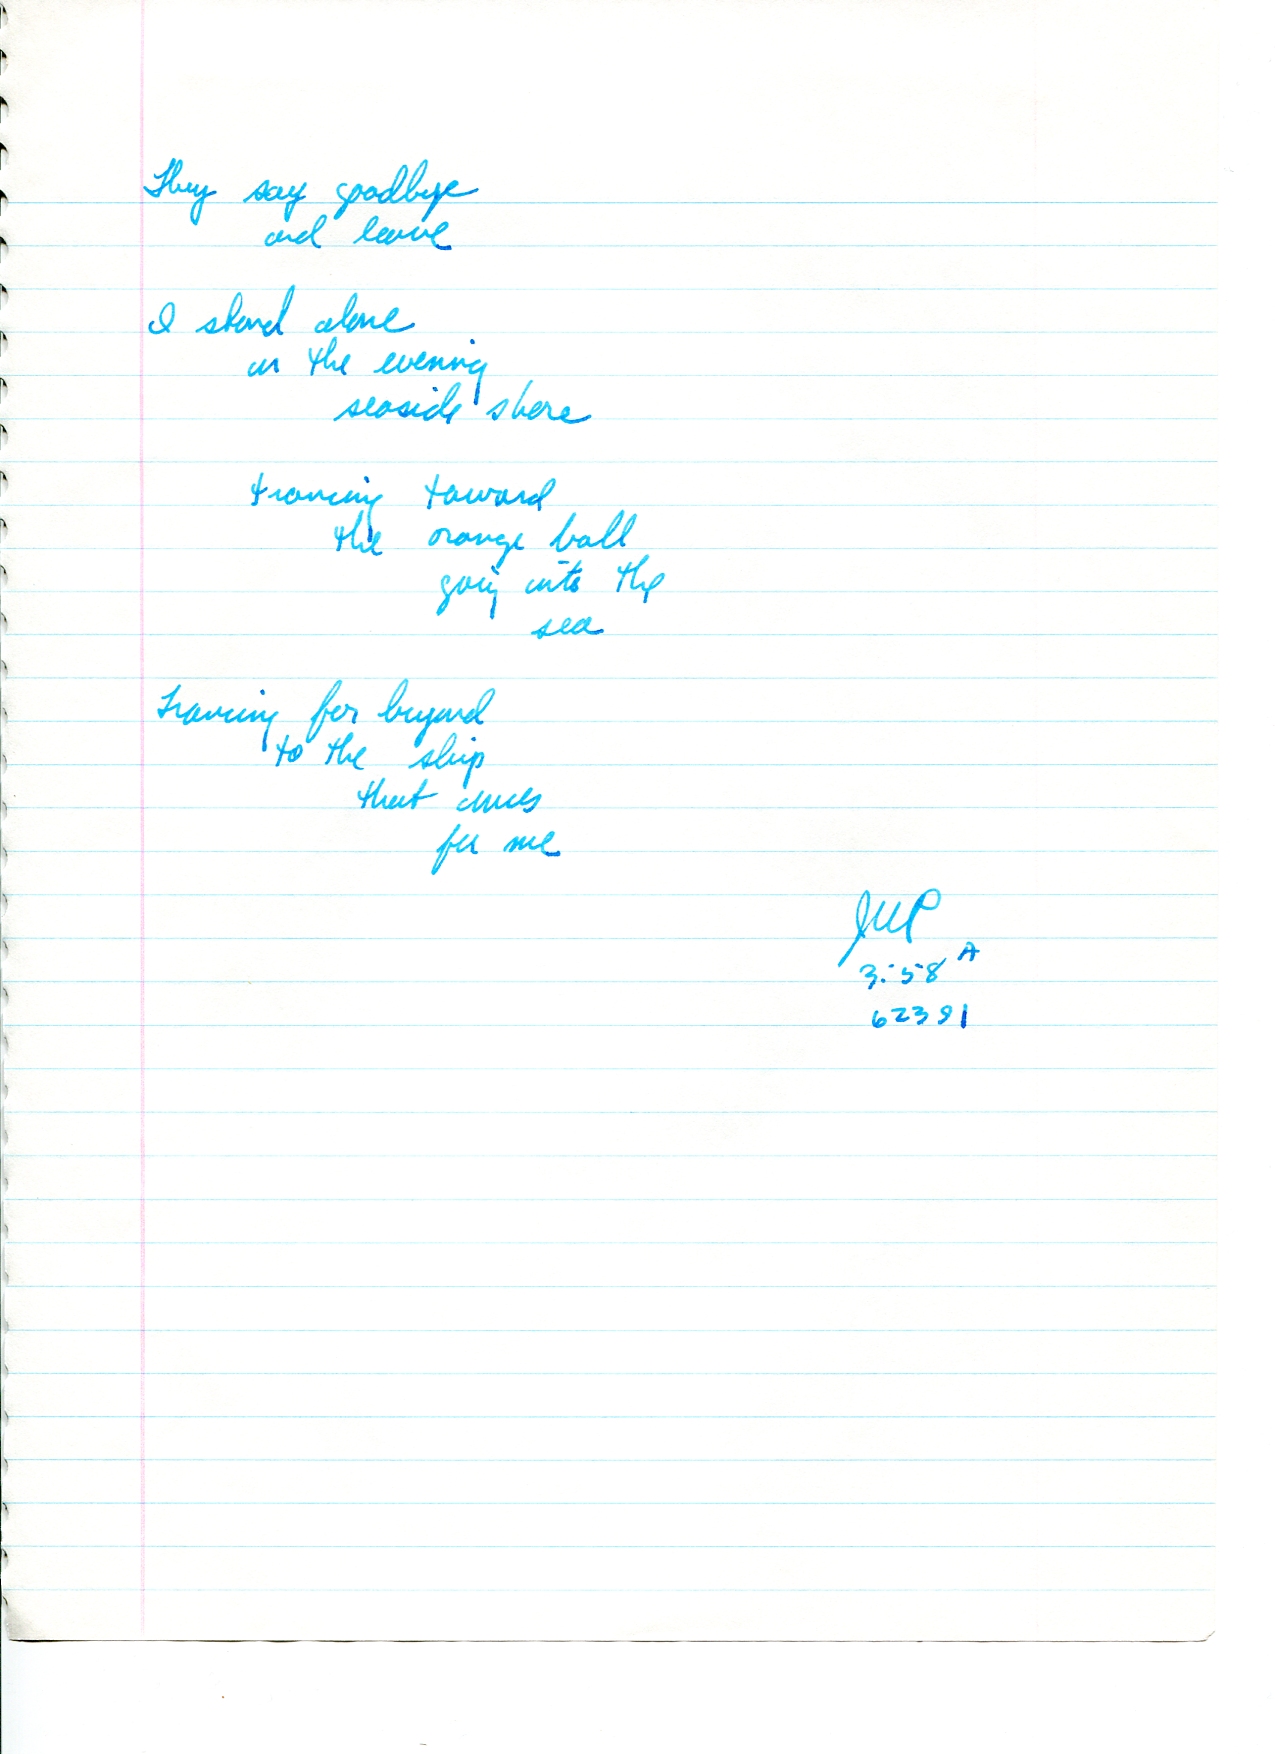 They say goodbye
and leave
I stand alone
on the evening
seaside shore
trancing toward
the orange ball
going into the
sea
Trancing far beyond
to the ship
that
for me
3:58 A
62381